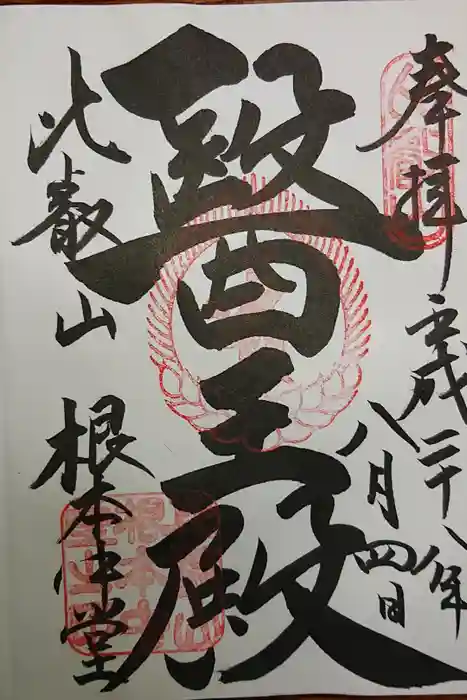 奉拝
平成二十八年
八月四日
醫王殿
比叡山
根本中堂